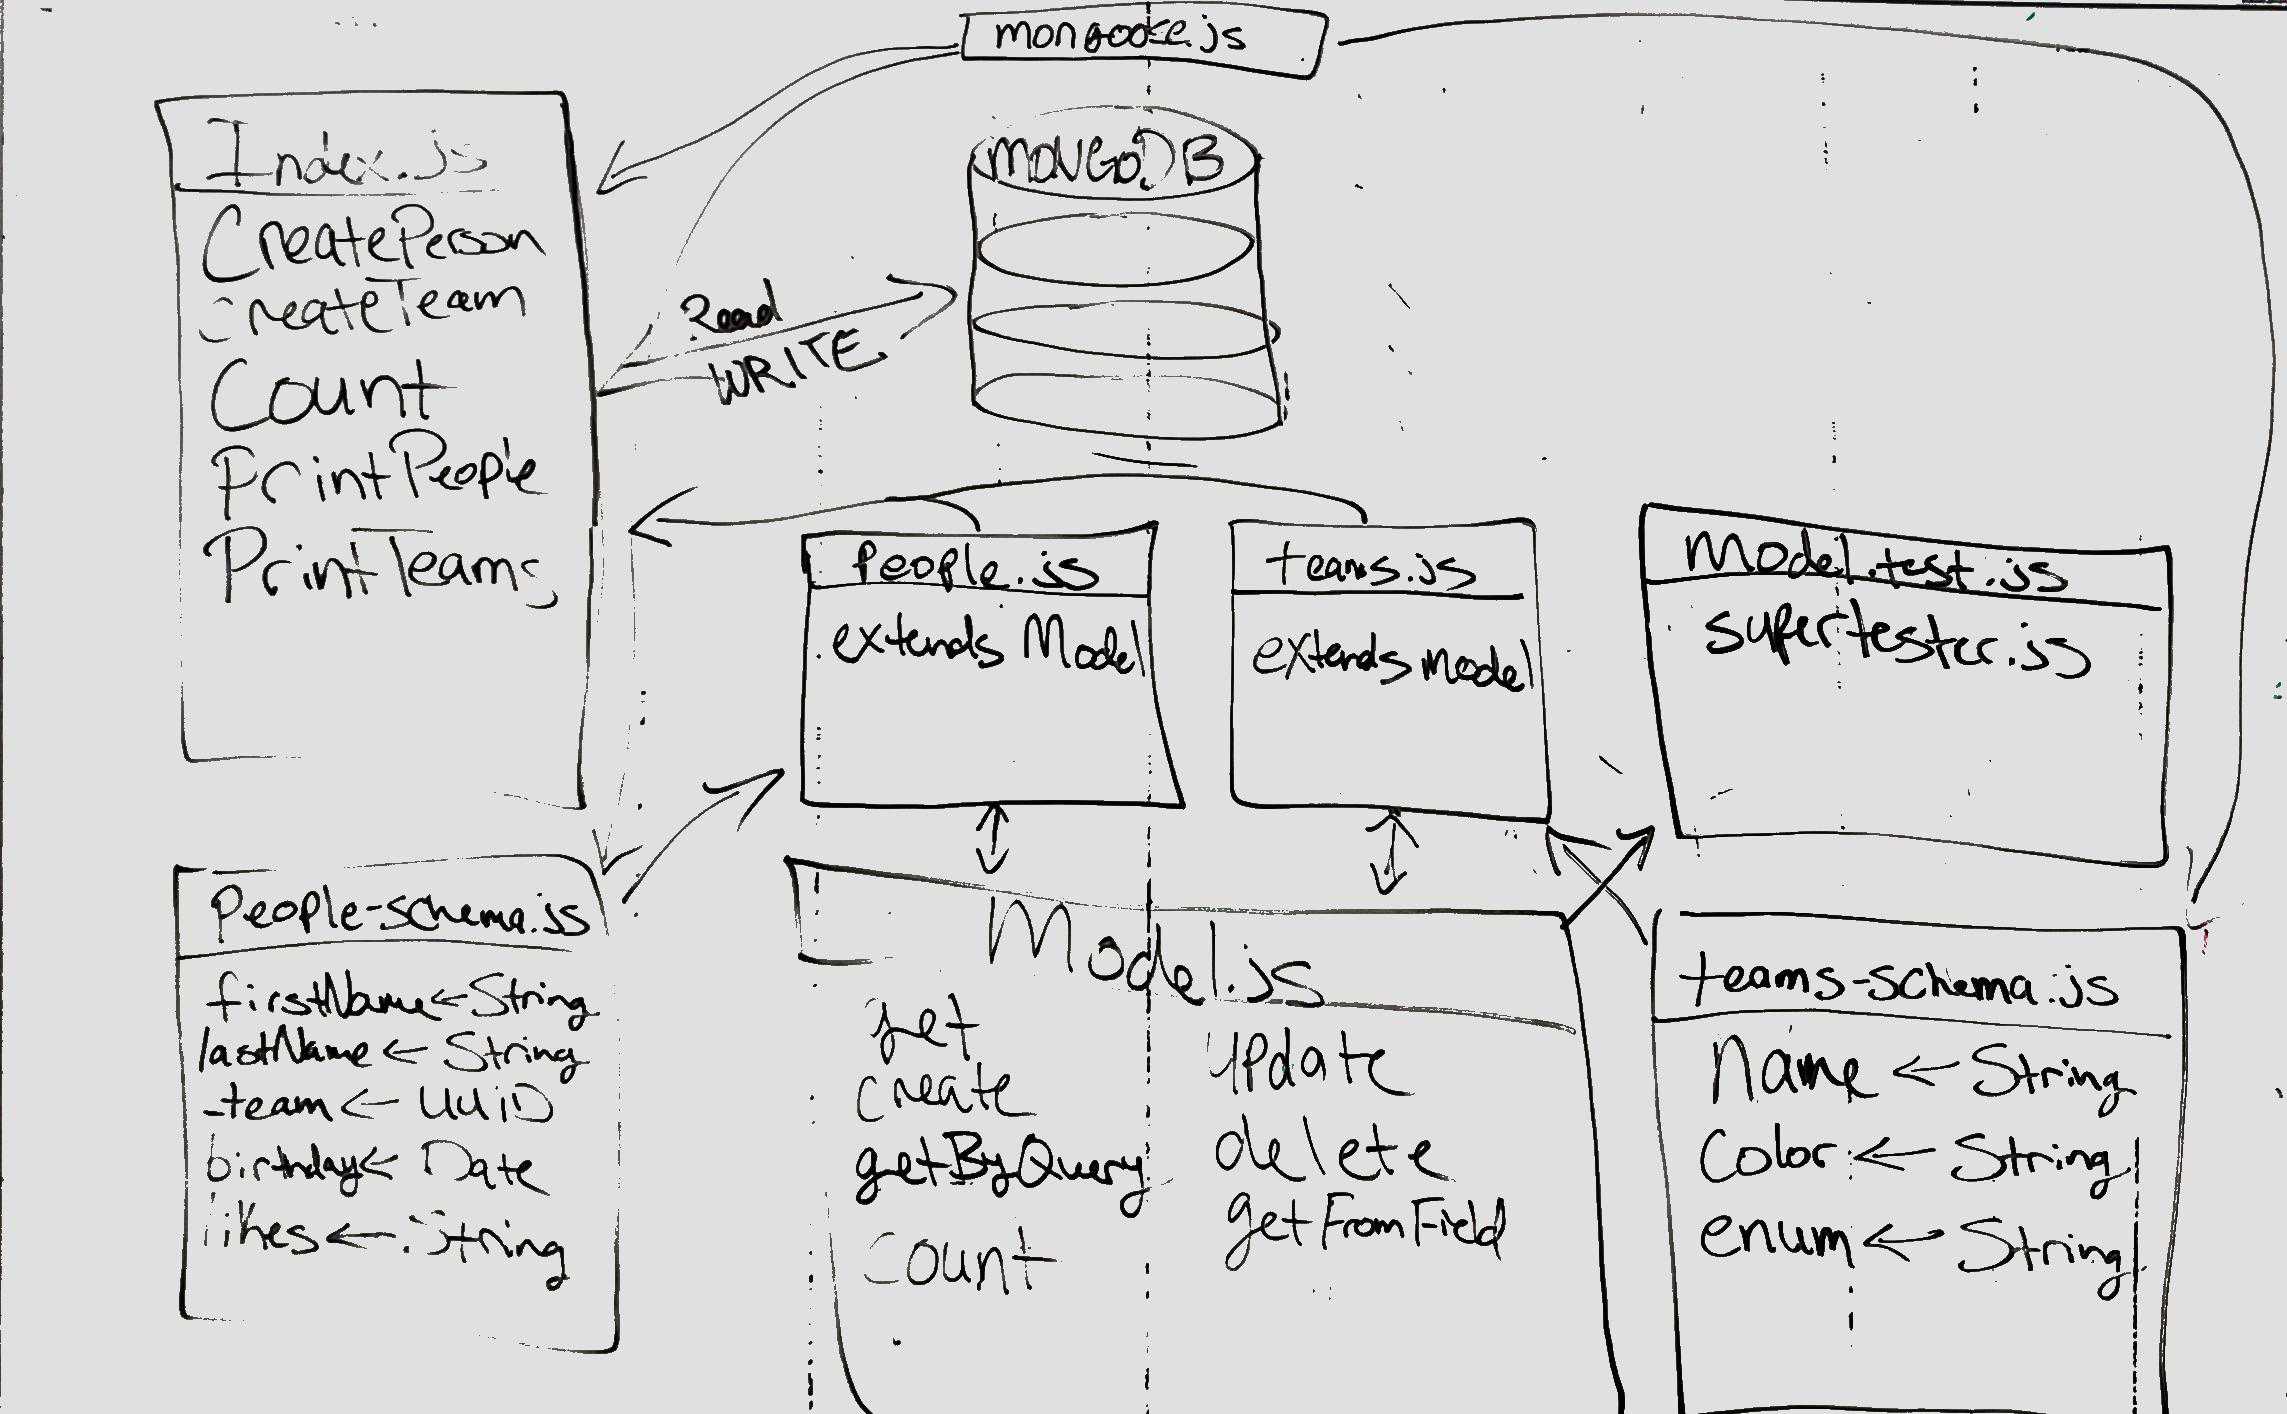 mongoose.js
Index.js
CreatePerson
CreateTeam
Count
PrintPeople
PrintTeams
MONGODB
Read
WRITE
people.js
extends Model
teams.js
extends model
model.test.js
supertester.js
people-schema.js
firstName ← String
lastName ← String
_team ← UUiD
birthday ← Date
likes ← String
Model.js
get
create
getByQuery
count
update
delete
getFromField
teams-schema.js
Name ← String
Color ← String
enum ← String